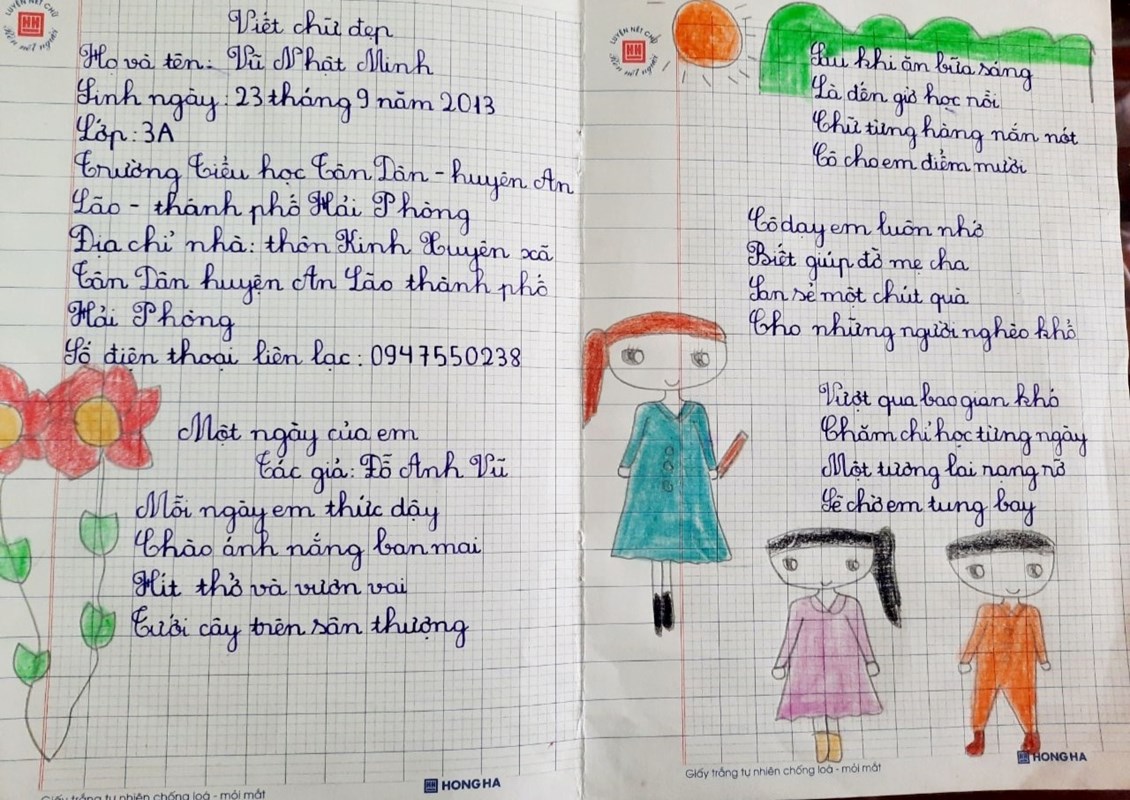 LUYỆN NÉT CHỮ
Rèn nết người
Viết chữ đẹp
Họ và tên: Vũ Nhật Minh
Sinh ngày: 23 tháng 9 năm 2013
Lớp: 3A
Trường Tiểu học Tân Dân - huyện An
Lão - thành phố Hải Phòng
Địa chỉ nhà: thôn Kinh Xuyên xã
Tân Dân huyện An Lão thành phố
Hải Phòng
Số điện thoại liên lạc: 0947550238
Một ngày của em
Tác giả: Đỗ Anh Vũ
Mỗi ngày em thức dậy
Chào ánh nắng ban mai
Hít thở và vươn vai
Tưới cây trên sân thượng
HONG HA
Giấy trắng tự nhiên chống loá - mỏi mắt
LUYỆN NÉT CHỮ
Rèn nết người
Sau khi ăn bữa sáng
Là đến giờ học rồi
Chữ từng hàng nắn nót
Cô cho em điểm mười
Cô dạy em luôn nhớ
Biết giúp đỡ mẹ cha
San sẻ một chút quà
Cho những người nghèo khổ
Vượt qua bao gian khó
Chăm chỉ học từng ngày
Một tương lai rạng rỡ
Sẽ chờ em tung bay
HONG HA
Giấy trắng tự nhiên chống loá - mỏi mắt